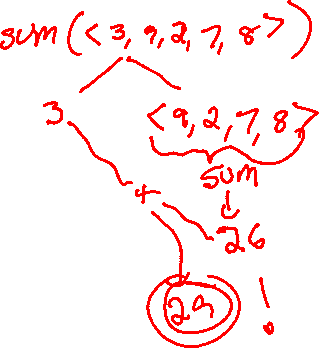 sum(<3, 9, 2, 7, 8>)
3 <9, 2, 7, 8>
sum
+ 26
29 !